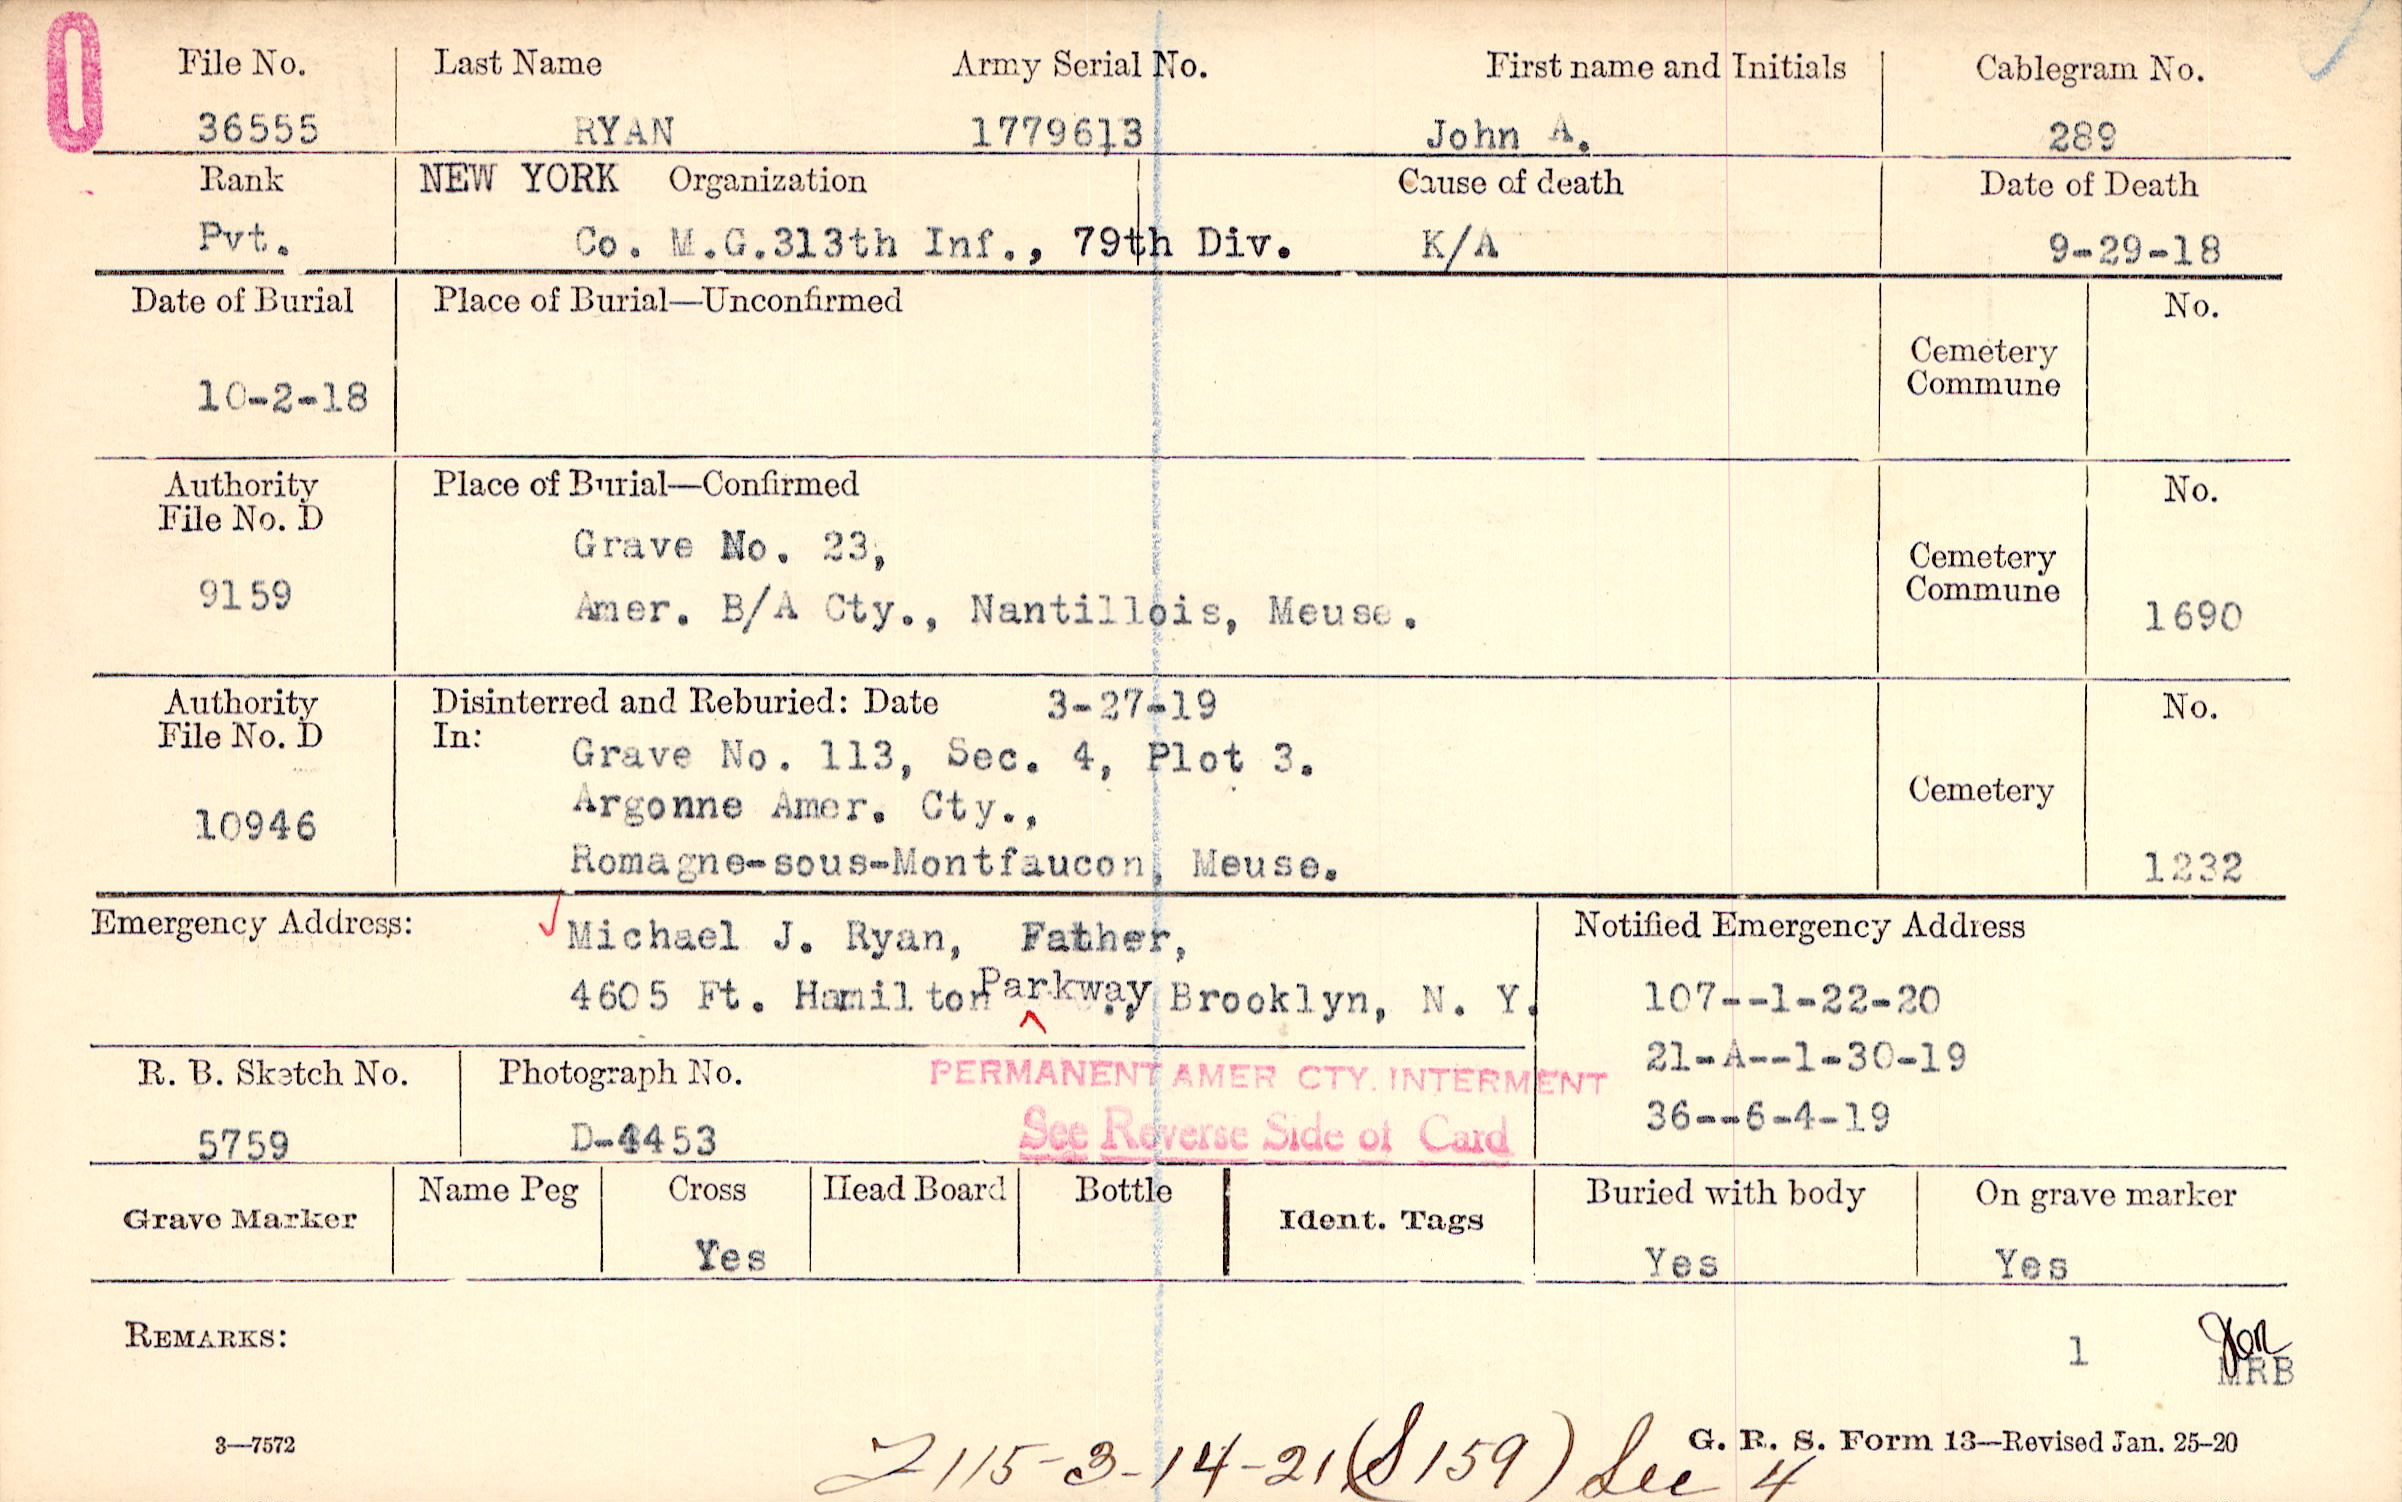 File No. Last Name Army Serial No. First name and Initials Cablegram No.
36555 RYAN 1779613 John A. 289
Rank NEW YORK Organization Cause of death Date of Death
Pvt. Co. M.G.313th Inf., 79th Div. K/A 9-29-18
Date of Burial Place of Burial—Unconfirmed No.
Cemetery
Commune
10-2-18
Authority Place of Burial—Confirmed No.
File No. D
Grave No. 23,
Cemetery
Commune
9159 Amer. B/A Cty., Nantillois, Meuse. 1690
Authority Disinterred and Reburied: Date 3-27-19 No.
File No. D In:
Grave No. 113, Sec. 4, Plot 3.
Argonne Amer. Cty., Cemetery
10946
Romagne-sous-Montfaucon, Meuse. 1232
Emergency Address: Michael J. Ryan, Father, Notified Emergency Address
4605 Ft. Hamilton Parkway., Brooklyn, N. Y. 107--1-22-20
21-A--1-30-19
R. B. Sketch No. Photograph No. PERMANENT AMER CTY. INTERMENT
36--6-4-19
5759 D-4453 See Reverse Side of Card
Grave Marker Name Peg Cross Head Board Bottle Ident. Tags Buried with body On grave marker
Yes Yes Yes
REMARKS:
1
MRB
3—7572 G. R. S. Form 13—Revised Jan. 25-20
115-3-14-21 (S159) Sec 4